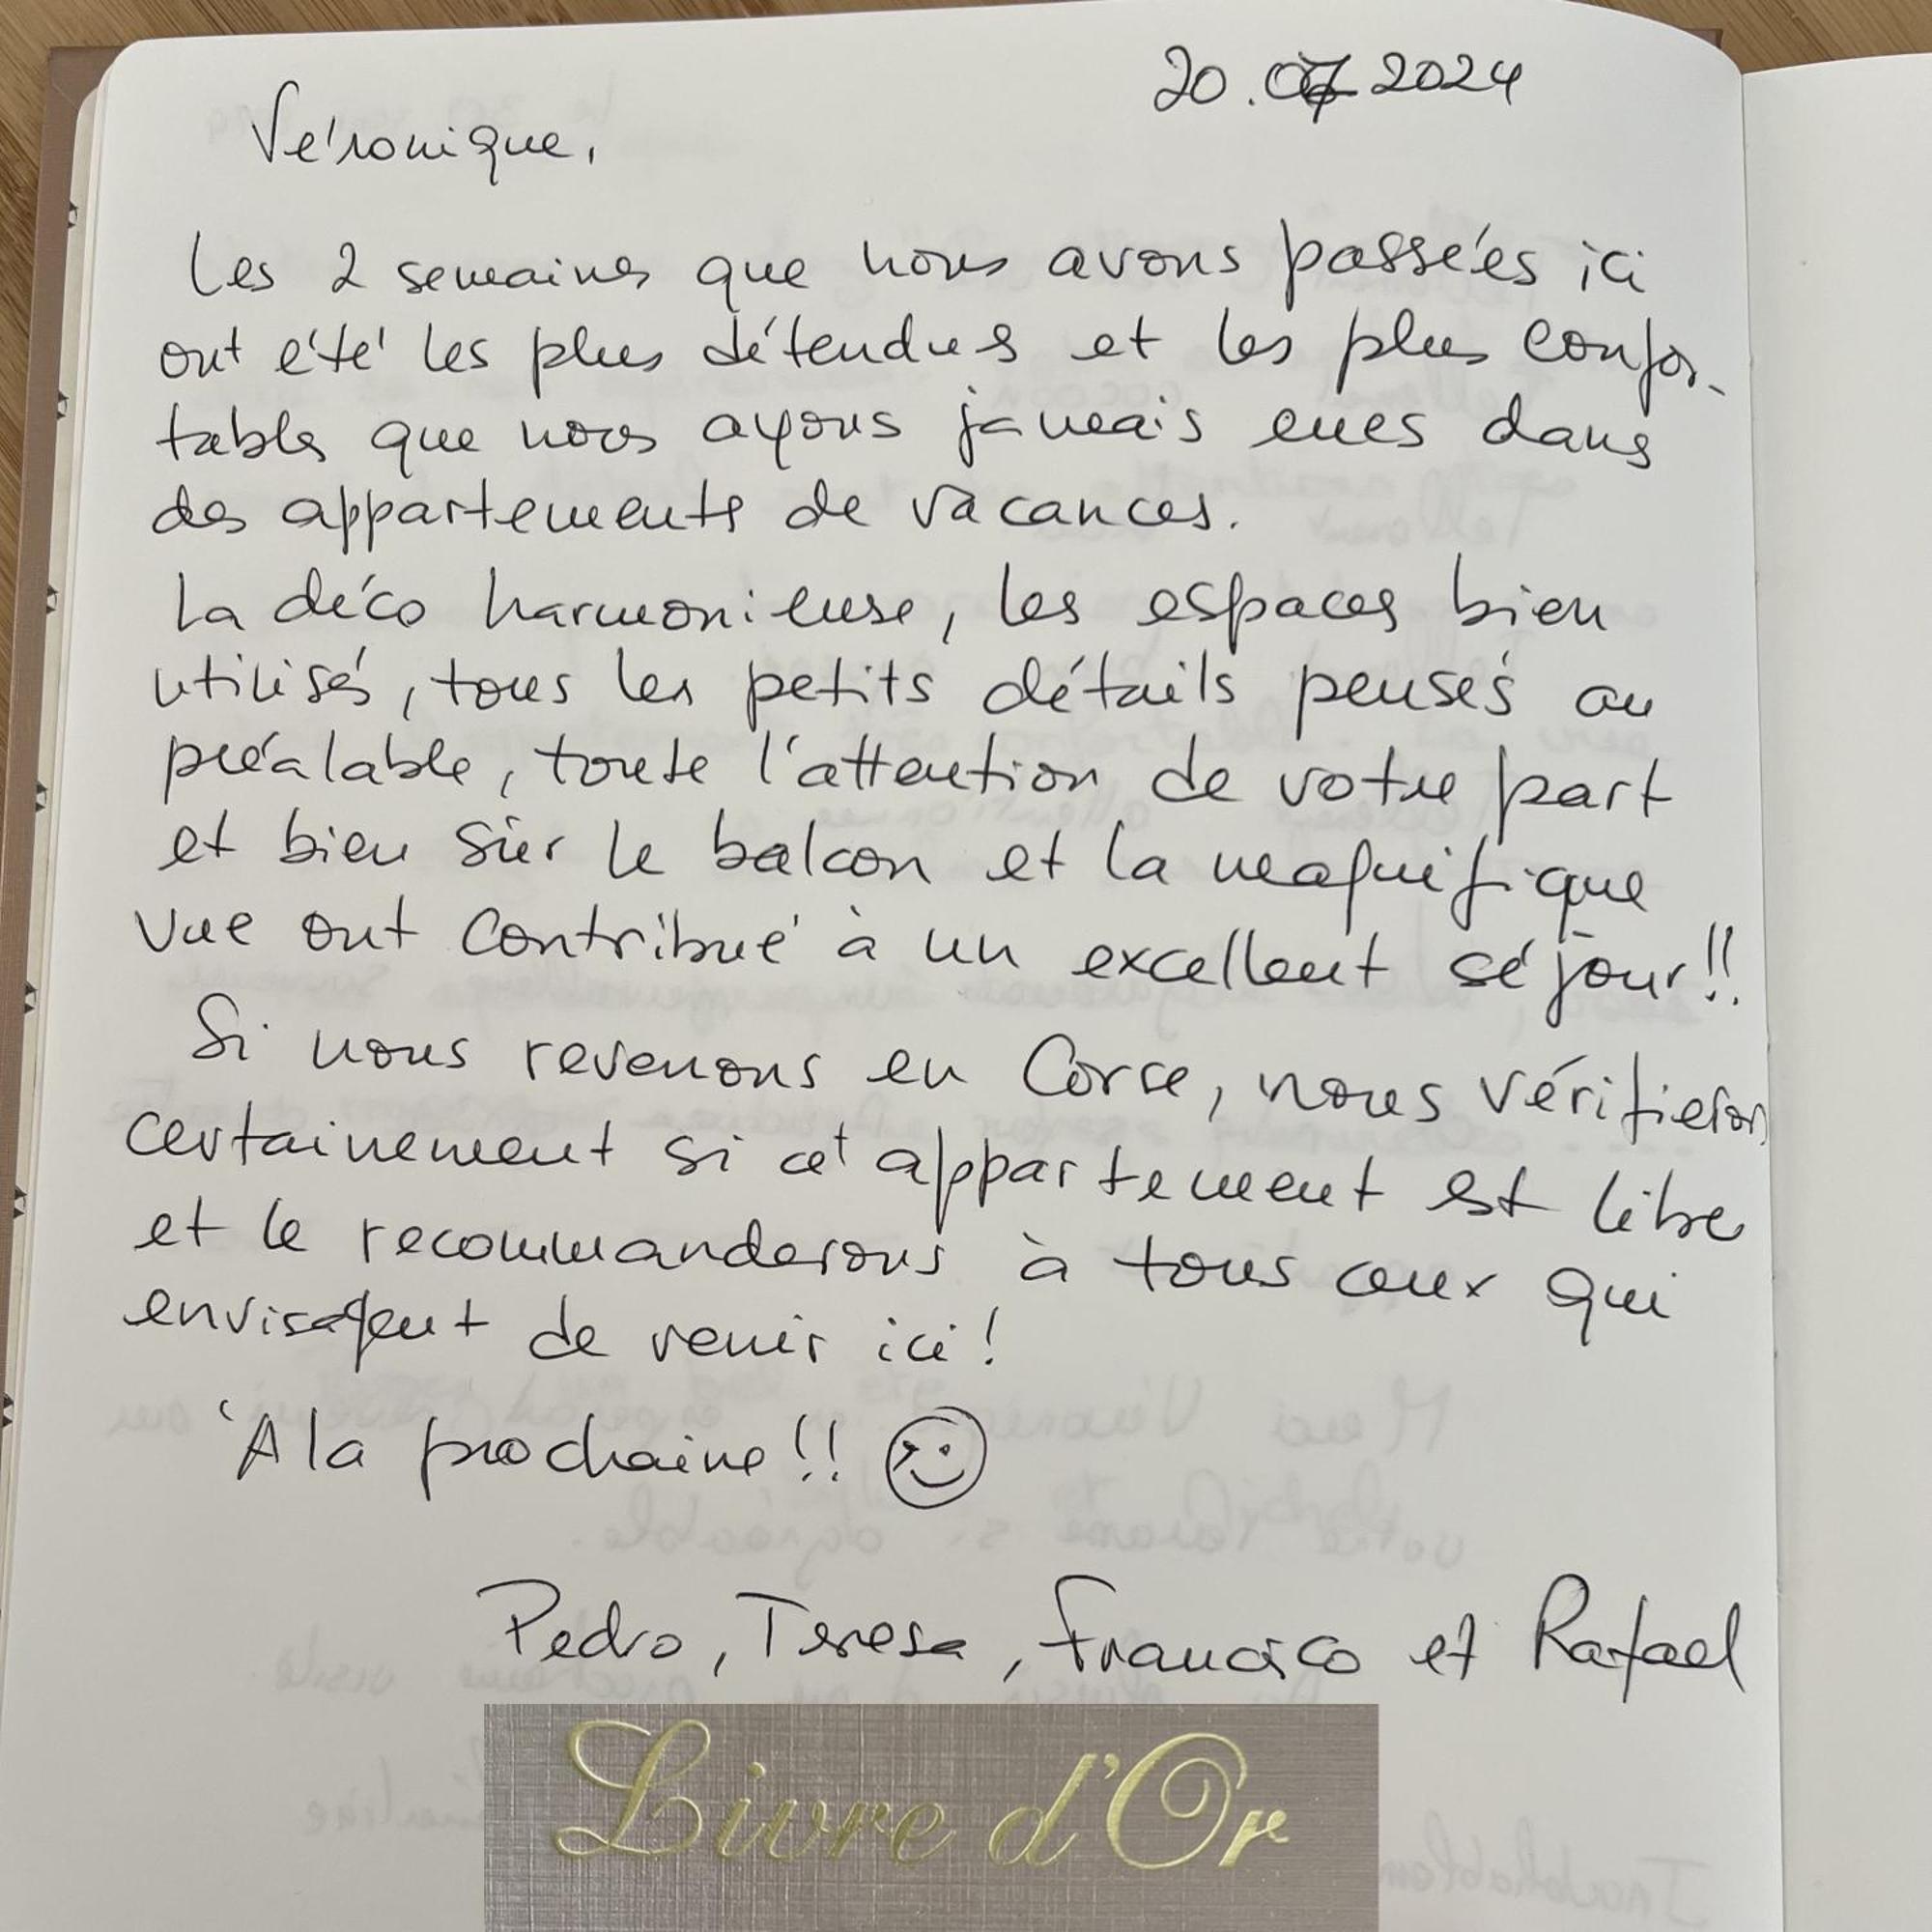 20.07 2024
Véronique,
Les 2 semaines que nous avons passées ici
ont été les plus détendues et les plus confor-
tables que nous ayons jamais eues dans
des appartements de vacances.
La déco harmonieuse, les espaces bien
utilisés, tous les petits détails pensés au
préalable, toute l'attention de votre part
et bien sûr le balcon et la magnifique
vue ont contribué à un excellent séjour!!
Si nous revenons en Corse, nous vérifierons
certainement si cet appartement est libre
et le recommanderons à tous ceux qui
envisagent de venir ici!
À la prochaine!!
Pedro, Teresa, Francisco et Rafael
Livre d'Or